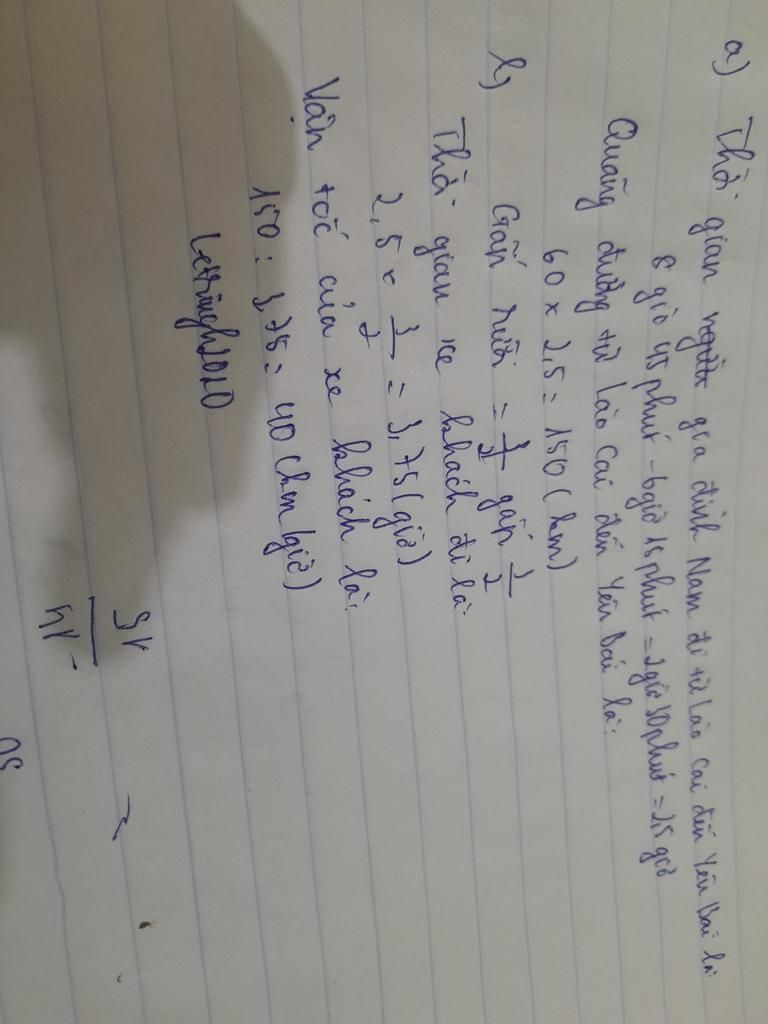 a) Thời gian người gia đình Nam đi từ Lào Cai đến Yên Bái là
8 giờ 45 phút - 6 giờ 15 phút = 2 giờ 30 phút = 2,5 giờ
Quãng đường từ Lào Cai đến Yên Bái là:
60 x 2,5 = 150 (km)
b) Gấp rưỡi = 3/2 gấp 3/2
Thời gian xe khách đi là
2,5 x 3/2 = 3,75 (giờ)
Vận tốc của xe khách là:
150 : 3,75 = 40 (km/giờ)